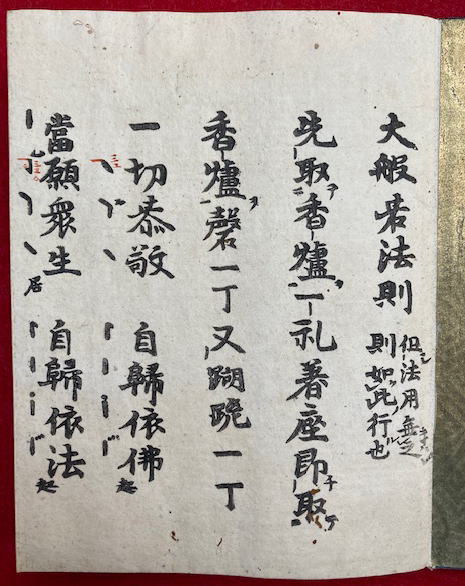 大般若法則 但法用無之
則如此行也
先取香爐一礼著座即取
香爐磬一丁又蹦跪一丁
一切恭敬 自歸依佛 起
當願衆生 居 自歸依法 起